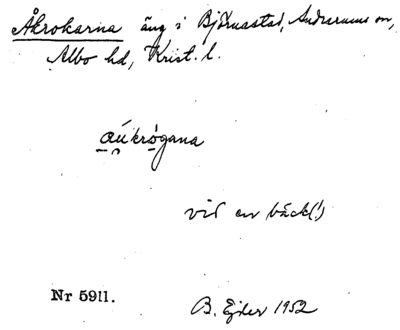 Åkrokarna äng i Björnastad, Andrarums sn,
Albo hd, Krist. l.
aúkrógana
vid en bäck(!)
Nr 5911.
B. Ejder 1952